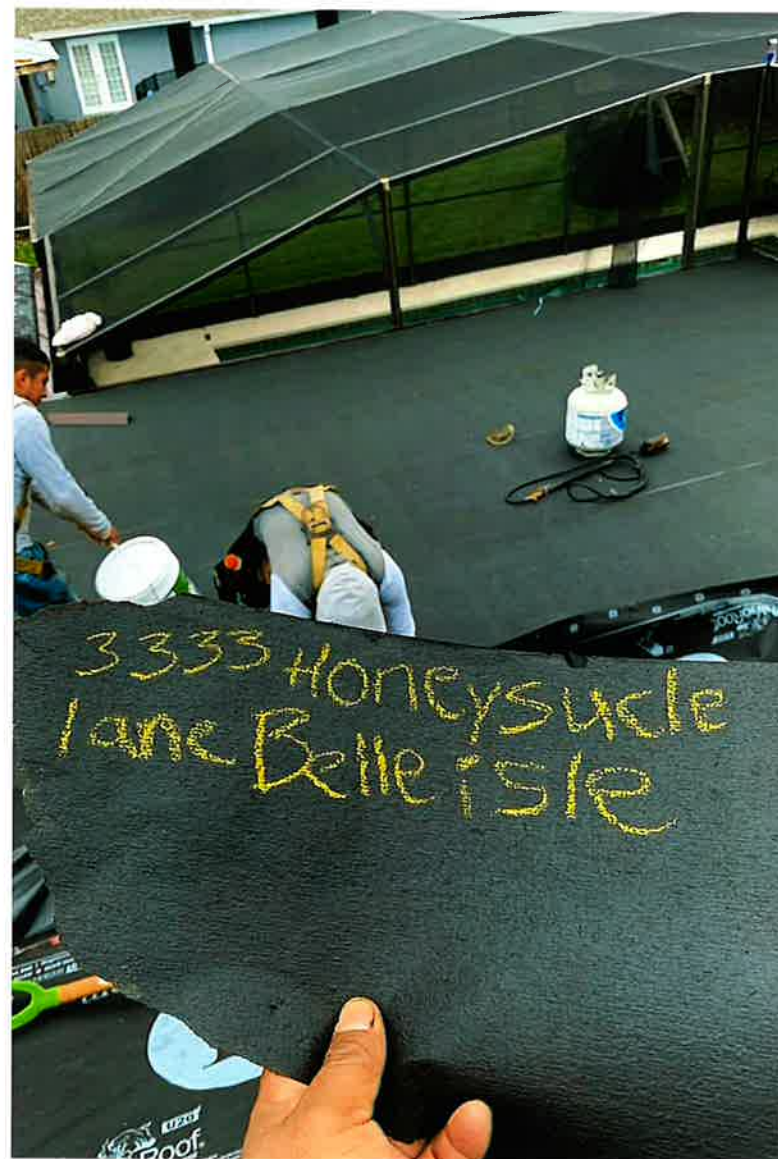 3333 Honeysucle
lane Belle isle
U20
Roof.